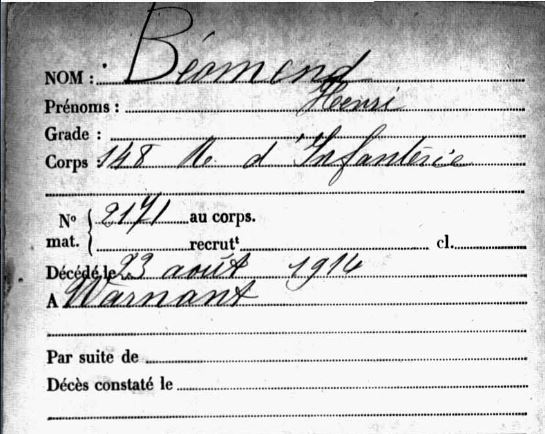 NOM : Béomond
Prénoms : Henri
Grade :
Corps : 148 R. d'Infanterie
N° mat. { 2171 au corps.
recrutt cl.
Décédé le 23 août 1914
A Warnant
Par suite de
Décès constaté le